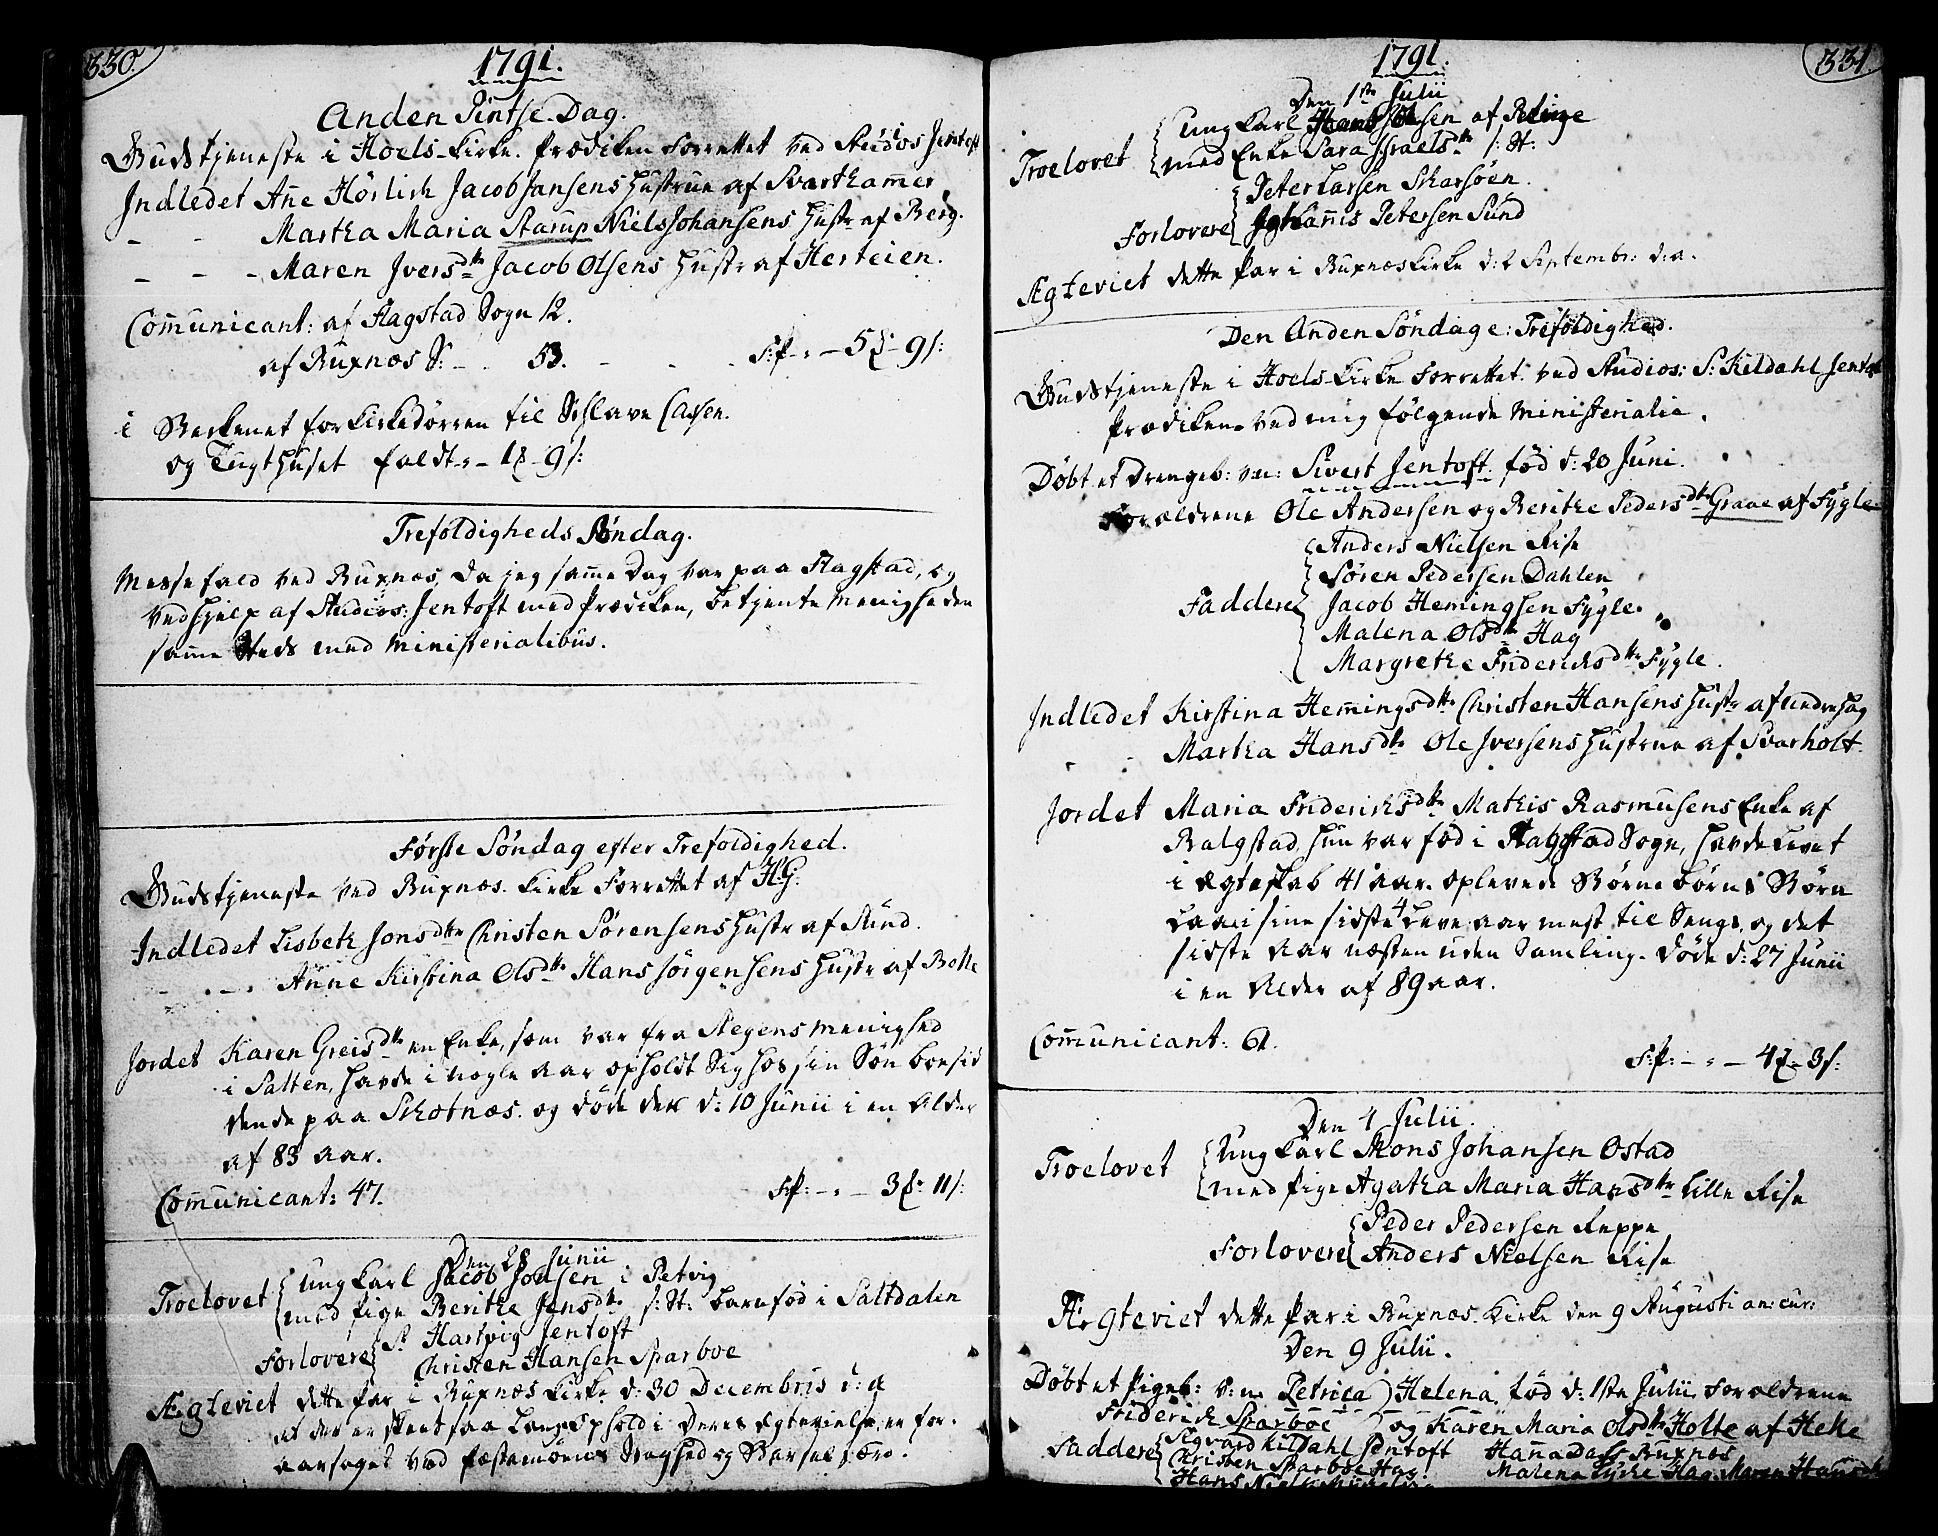 330.
1791.
Anden Pintse-Dag.
Gudstjeneste i Hoels-Kirke. Prædiken forrettet ved Studios Jentoft
Indledet Añe Hörlich Jacob Jansens Hustrue af Svarthamer.
- - Martha Maria Aarup Niels Johansens Hustr af Berg.
- - - Maren Jvers dtr Jacob Olsens Hustr af Herteien.
Com̃unicant: af Flagstad Sogn 12.
af Buxnæs S: - 53. - - - S:P - : - 5 - 9 s:
i Bekkenet for Kirkedörren til Slave Cassen.
og Tugthuset faldt - : - 1 - 9 s:
Trefoldigheds Söndag.
Messefald ved Buxnæs, da jeg sam̃e Dag var paa Flagstad, og
ved Hjelp af Studios: Jentoft med Prædiken, betjente Menigheden
sam̃e Steds med Ministerialibus.
Første Söndag efter Trefoldighed.
Gudstjeneste ved Buxnæs Kirke forrettet af H.G.
Indledet Lisbeth Jonsdtr Christen Sörensens Hustr af Stund.
- - - Anne Kirstina Olsdtr Hans Jörgensens Hustr af Bolle
Jordet Karen Greisdtr en Enke, som var fra Stegens Menighed
i Salten, havde i nogle aar opholdt Sig hos sin Sön boesid
dende paa Skotnæs. og døde der d: 10 Junii i en Alder
af 83 aar.
Com̃unicant: 47. S:P: - : - 3 - 11 s:
Den 28 Junii
Troelovet Ungkarl Jacob Joensen i Petvig
med Pige Berithe Jensdtr s: St: barnfød i Saltdalen
Forlovere Sr Hartvig Jentoft
Christen Hansen Sparboe
Ægteviet dette Par i Buxnæs Kirke d: 30 Decembris d: a
at der er skeet saa Langt Ophold i deres Ægtevielse, er for-
aarsaget ved Fæstemöens Svaghed og Barselfærd.
331.
1791.
Den 1ste Julii
Troelovet Ungkarl Hans Olsen af Reine
med Enke Sara Israelsdtr s: St:
Forlovere Peter Larsen Skarsöen.
Johannis Petersen Sund
Ægteviet dette Par i Buxnæs Kirke d: 2 Septembr: d: a.
Den Anden Söndag e: Trefoldighed.
Gudstjeneste i Hoels-Kirke forrettet ved Studios: S: Kildahl Jentoft
Prædiken. ved mig følgende Ministerialia.
Döbt et Drengeb: v: n: Sivert Jentoft. fød d: 20 Juni.
Forældrene Ole Andersen og Berithe Pedersdtr Graae af Fygle
Fadder Anders Nielsen Rise
Sören Pedersen Dahlen
Jacob Hemingsen Fygle.
Malena Olsdtr Hag
Margrethe Friderichsdtr Fygle.
Indledet Kirstina Hem̃ingsdtr Christen Hansens Hustr af Indrehag
- - Martha Hansdtr Ole Jversens Hustrue af Svarholt.
Jordet Maria Friderichsdtr Mathis Rasmusens Enke af
Balgstad, hun var fød i Flagstad Sogn, havde Levet
i Ægteskab 41 aar. oplevede Börnebörns Börn
Laae i sine sidste 4 Leve aar mest til Sengs, og det
sidste Aar næsten uden Samling. døde d: 27 Junii
i en Alder af 89 aar.
Com̃unicant: 61.
S:P: - : - 4 - 3 s:
Den 4 Julii.
Troelovet Ungkarl Mons Johansen Ostad
med Pige Agatha Maria Hansdtr Lille Rise
Forlovere Peder Pedersen Reppe
Anders Nielsen Rise
Ægteviet dette Par i Buxnæs Kirke den 9 Augusti an: cur:
Den 9 Julii.
Döbt et Pigeb: v: n. Petrica Helena, fød d: 1ste Julii, Forældrene
Friderich Sparboe og Karen Maria Olsdtr Holte af Helle
Faddere Sigvard Kildahl Jentoft Han̄a Dass Buxnæs
Christen Sparboe Hag Malena Hag, Maren
Hans